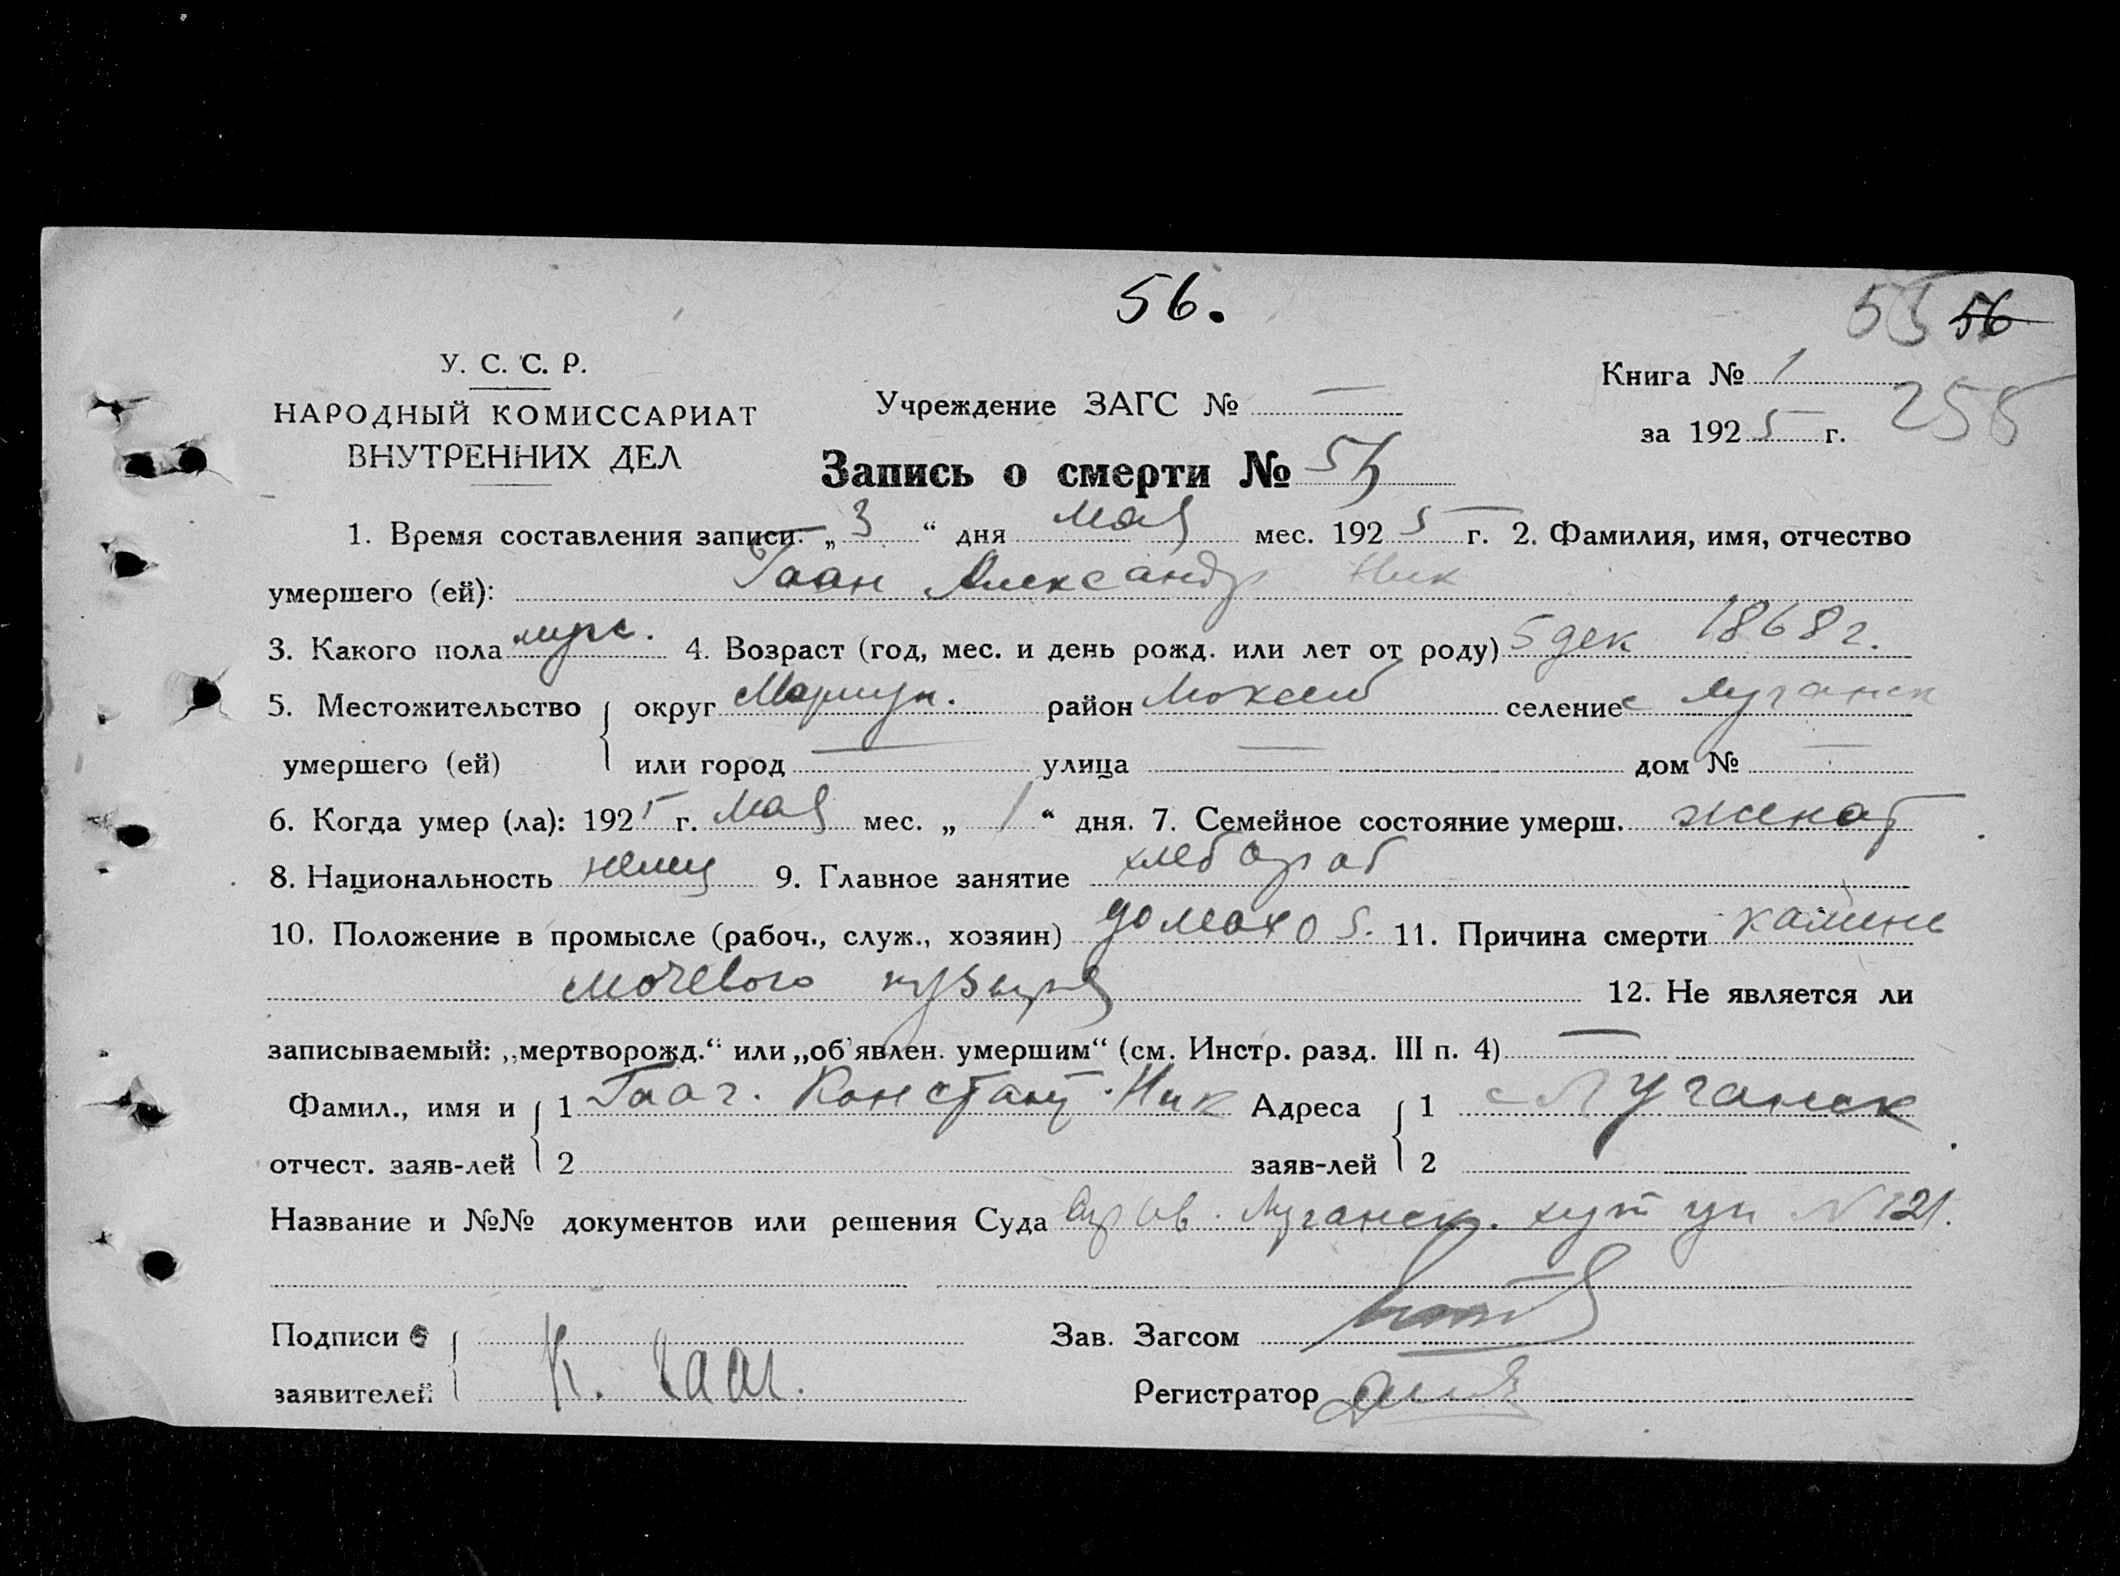 56.
55 56
У. С. С. Р.
НАРОДНЫЙ КОМИССАРИАТ
ВНУТРЕННИХ ДЕЛ
Учреждение ЗАГС № —
Книга № 1
за 1925 г.
255
Запись о смерти № 55
1. Время составления записи: „ 3 “ дня мая мес. 1925 г. 2. Фамилия, имя, отчество
умершего (ей): Гаан Александр Ник
3. Какого пола мужс. 4. Возраст (год, мес. и день рожд. или лет от роду) 5 дек 1868 г.
5. Местожительство умершего (ей) округ Мариуп. район селение с Луганск
или город — улица — дом № —
6. Когда умер (ла): 1925 г. мая мес. „ 1 “ дня. 7. Семейное состояние умерш. женат
8. Национальность немец 9. Главное занятие хлебороб
10. Положение в промысле (рабоч., служ., хозяин) домохоз. 11. Причина смерти камень
мочевого пузыря 12. Не является ли
записываемый: „мертворожд.“ или „об'явлен. умершим“ (см. Инстр. разд. III п. 4) —
Фамил., имя и отчест. заяв-лей 1 Гааг. Констант. Ник Адреса заяв-лей 1 с Луганск
2 2
Название и №№ документов или решения Суда Луганск. N 121.
Подписи заявителей К. Гааг.
Зав. Загсом
Регистратор